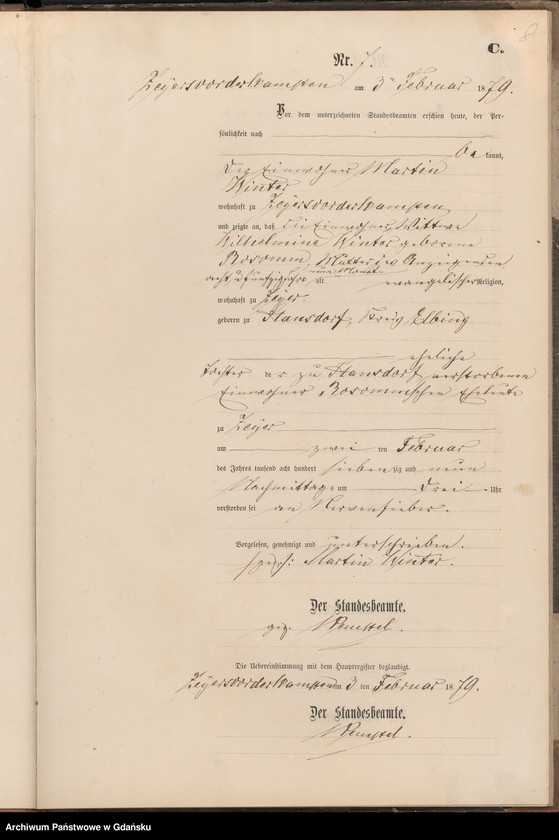 8
C.
Nr. 7.
Zeyersvorderkampen am 3n Februar 1879.
Vor dem unterzeichneten Standesbeamten erschien heute, der Per-
sönlichkeit nach
be kannt,
der Einwohner Martin
Winter
wohnhaft zu Zeyersvorderkampen
und zeigte an, daß die Einwohner Wittwe
Wilhelmine Winter geborene
Rosomm, Mutter des Anzeigenden
acht u fünfzig Jahre neun Monate alt evangelischer Religion,
wohnhaft zu Zeyer.
geboren zu Hansdorf, Kreis Elbing
eheliche
Tochter der zu Hansdorf verstorbenen
Einwohner Rosommschen Eheleute
zu Zeyer
am zwei ten Februar
des Jahres tausend acht hundert sieben zig und neun
Nachmittags um drei Uhr
verstorben sei an Nervenfieber.
Vorgelesen, genehmigt und unterschrieben.
gez: Martin Winter.
Der Standesbeamte.
gez.
Die Uebereinstimmung mit dem Hauptregister beglaubigt.
Zeyersvorderkampen am 3 ten Februar 1879.
Der Standesbeamte.
Archiwum Państwowe w Gdańsku